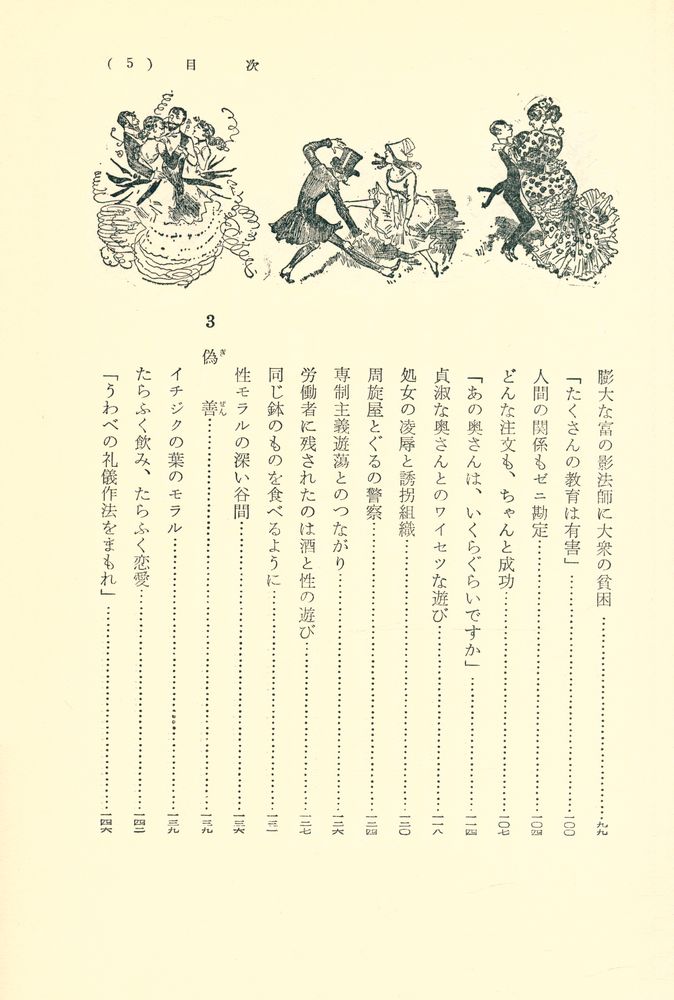 (5) 目 次
膨大な富の影法師に大衆の貧困……九九
「たくさんの教育は有害」……一〇〇
人間の関係もゼニ勘定……一〇四
どんな注文も、ちゃんと成功……一〇七
「あの奥さんは、いくらぐらいですか」……一一四
貞淑な奥さんとのワイセツな遊び……一一八
処女の凌辱と誘拐組織……一二〇
周旋屋とぐるの警察……一二四
専制主義遊蕩とのつながり……一二六
労働者に残されたのは酒と性の遊び……一二七
同じ鉢のものを食べるように……一三一
性モラルの深い谷間……一三六
3 偽善……一三九
イチジクの葉のモラル……一三九
たらふく飲み、たらふく恋愛……一四二
「うわべの礼儀作法をまもれ」……一四六